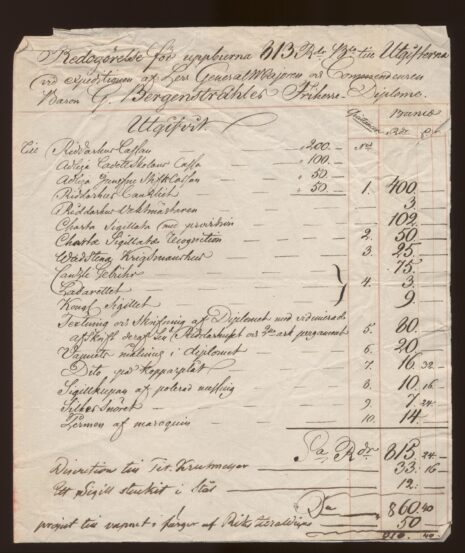 Redogörelse för uppburna 813 Rdr Bco till Utgifterna
vid expeditionen af Herr General Majoren och Commendeuren
Baron G. Bergenstråhles Friherre-Diplome.
Utgifvit Qvittencer Banco
Rdr
Till Riddarhus Cassan — 200. — No
Adliga Cadettskolans Cassa — 100. —
Adliga Jungfru Stifts Cassan — 50 —
Riddarhus Cantzliet — 50. — 1. 400.
Riddarhus Vaktmästaren — 3.
Charta Sigillata med provision — 102.
Chartæ Sigillatæ Recognition — 2. 50.
Wadstena Krigsmanshus — 3. 25.
Cantzli Gebühr — 75.
Lazarettet — 4. 3.
Kongl Sigillet — 9
Textning och Skrifning af Diplomet med vidimerade
afskrift deraf till Riddarhuset och ark pergament 5. 80.
Vapnets målning i diplomet — 6. 20
Dito på Kopparplåt — 7. 16. 32.
Sigillkupan af polerad messing — 8. 10. 16.
Silkes Snöret — 9. 7. 24.
Permen af maroquin — 10. 14.
Sa Rdr 813. 24.
Discretion till Tit. — 33. 16
Ett Sigill stucket i Stål — 12.
Sa 860. 40
project till vapnet i färger af Riks Heraldicus 50
910. 40.